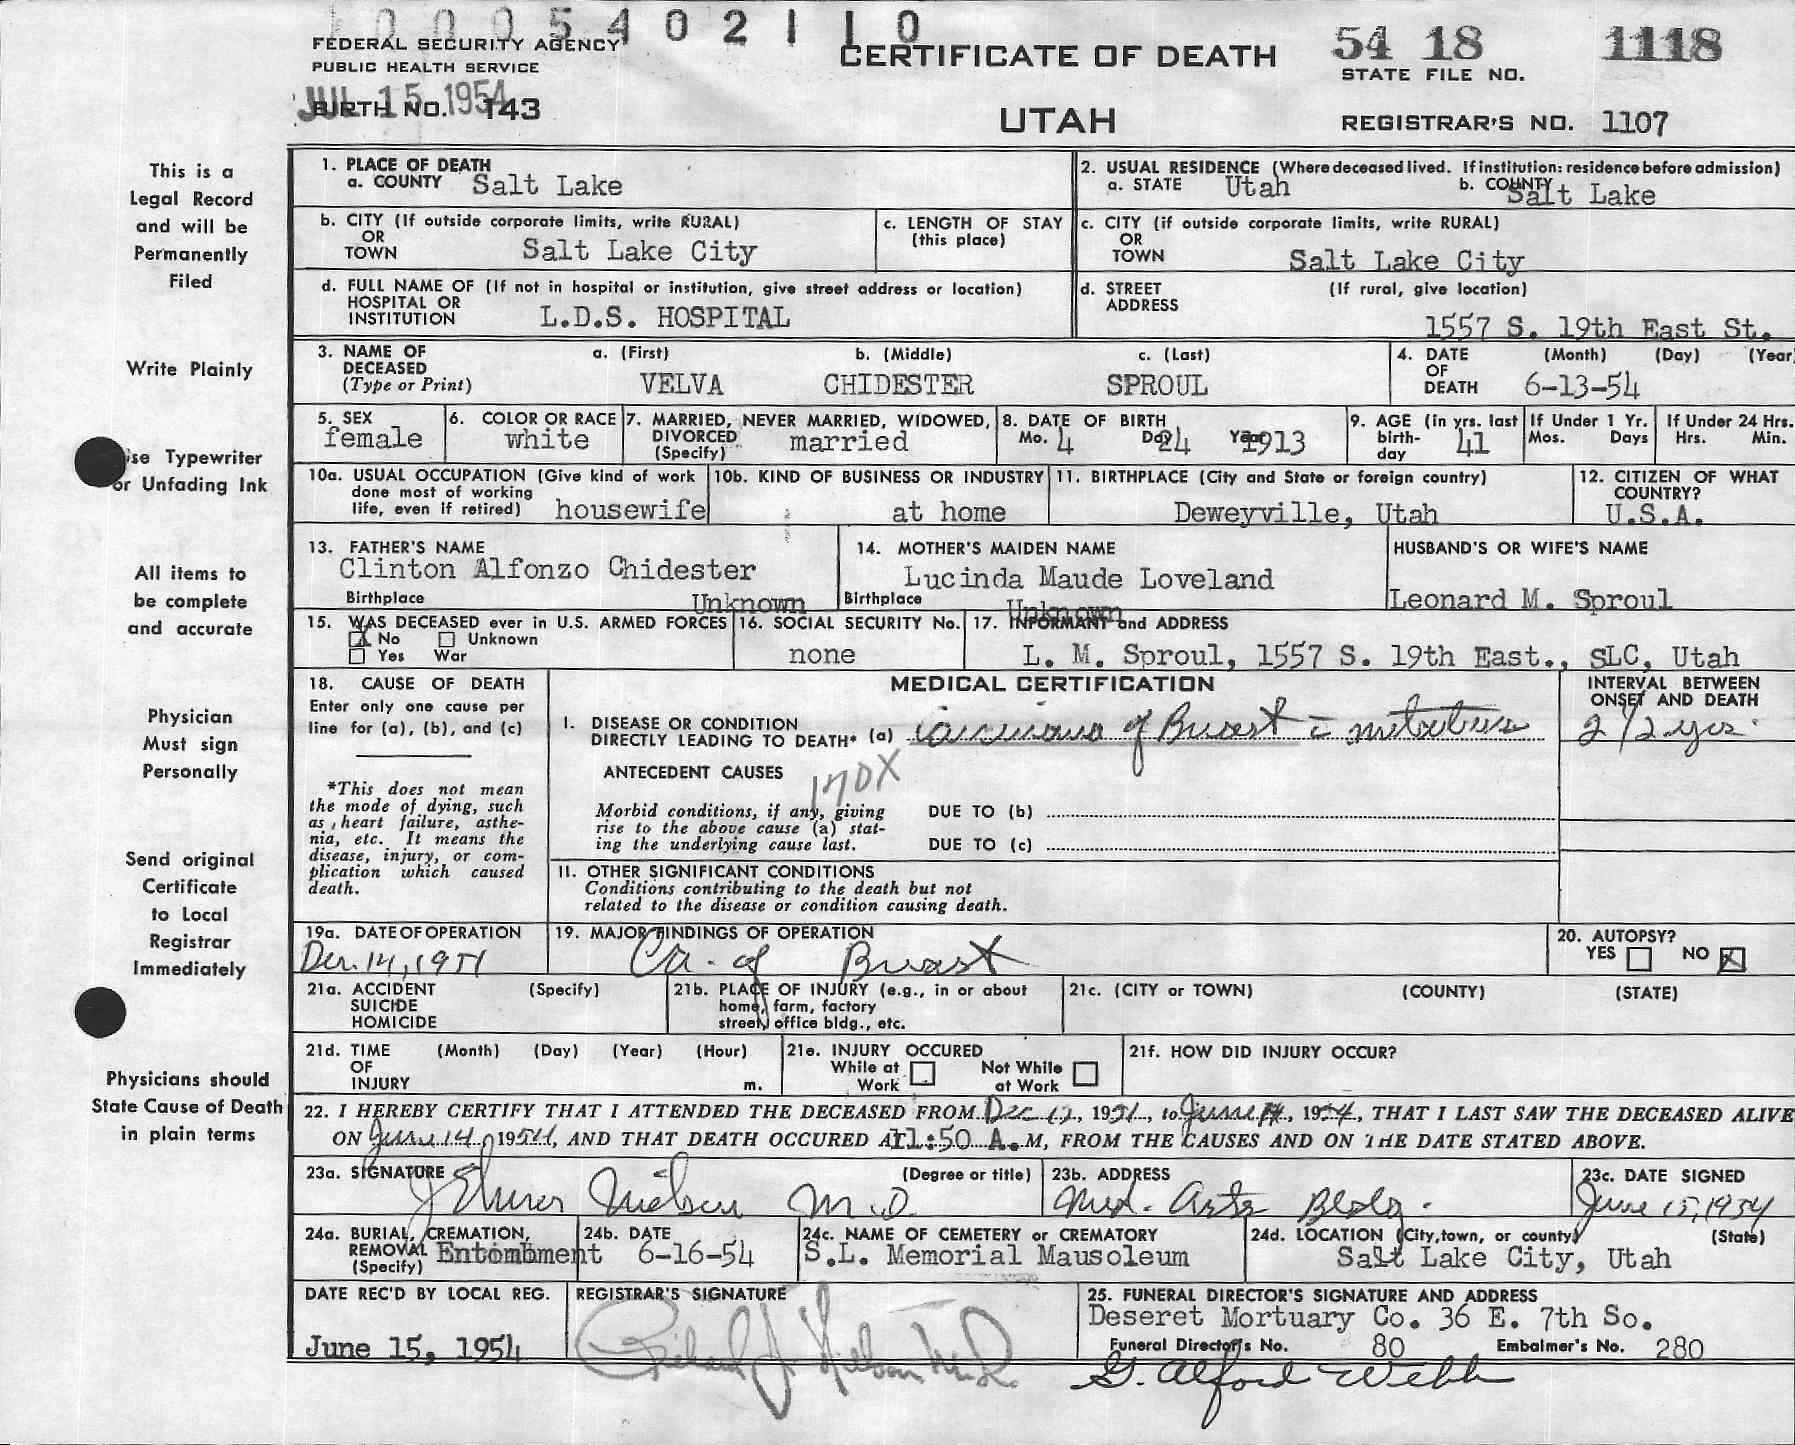 0005402110
FEDERAL SECURITY AGENCY
PUBLIC HEALTH SERVICE
CERTIFICATE OF DEATH
54 18 1118
STATE FILE NO.
JUL 15 1954
BIRTH NO. 143
UTAH
REGISTRAR'S NO. 1107
This is a
Legal Record
and will be
Permanently
Filed
Write Plainly
Use Typewriter
or Unfading Ink
All items to
be complete
and accurate
Physician
Must sign
Personally
Send original
Certificate
to Local
Registrar
Immediately
Physicians should
State Cause of Death
in plain terms
1. PLACE OF DEATH
a. COUNTY Salt Lake
2. USUAL RESIDENCE (Where deceased lived. If institution: residence before admission)
a. STATE Utah b. COUNTY Salt Lake
b. CITY (If outside corporate limits, write RURAL)
OR
TOWN Salt Lake City
c. LENGTH OF STAY
(this place)
c. CITY (if outside corporate limits, write RURAL)
OR
TOWN Salt Lake City
d. FULL NAME OF (If not in hospital or institution, give street address or location)
HOSPITAL OR
INSTITUTION L.D.S. HOSPITAL
d. STREET (If rural, give location)
ADDRESS
1557 S. 19th East St.
3. NAME OF DECEASED (Type or Print)
a. (First) b. (Middle) c. (Last)
VELVA CHIDESTER SPROUL
4. DATE OF DEATH (Month) (Day) (Year
6-13-54
5. SEX
female
6. COLOR OR RACE
white
7. MARRIED, NEVER MARRIED, WIDOWED,
DIVORCED (Specify) married
8. DATE OF BIRTH
Mo. 4 Day 24 Year 1913
9. AGE (in yrs. last
birth-
day 41
If Under 1 Yr.
Mos. Days
If Under 24 Hrs.
Hrs. Min.
10a. USUAL OCCUPATION (Give kind of work
done most of working
life, even if retired) housewife
10b. KIND OF BUSINESS OR INDUSTRY
at home
11. BIRTHPLACE (City and State or foreign country)
Deweyville, Utah
12. CITIZEN OF WHAT
COUNTRY?
U.S.A.
13. FATHER'S NAME
Clinton Alfonzo Chidester
Birthplace Unknown
14. MOTHER'S MAIDEN NAME
Lucinda Maude Loveland
Birthplace Unknown
HUSBAND'S OR WIFE'S NAME
Leonard M. Sproul
15. WAS DECEASED ever in U.S. ARMED FORCES
X No Unknown
Yes War
16. SOCIAL SECURITY No.
none
17. INFORMANT and ADDRESS
L. M. Sproul, 1557 S. 19th East., SLC, Utah
18. CAUSE OF DEATH
Enter only one cause per
line for (a), (b), and (c)
*This does not mean
the mode of dying, such
as heart failure, asthe-
nia, etc. It means the
disease, injury, or com-
plication which caused
death.
MEDICAL CERTIFICATION
INTERVAL BETWEEN
ONSET AND DEATH
I. DISEASE OR CONDITION
DIRECTLY LEADING TO DEATH* (a) Carcinoma of Breast c̄ metastases
2 1/2 yrs.
ANTECEDENT CAUSES
170X
Morbid conditions, if any, giving
rise to the above cause (a) stat-
ing the underlying cause last.
DUE TO (b)
DUE TO (c)
11. OTHER SIGNIFICANT CONDITIONS
Conditions contributing to the death but not
related to the disease or condition causing death.
19a. DATE OF OPERATION
Dec. 14, 1951
19. MAJOR FINDINGS OF OPERATION
Ca. of Breast
20. AUTOPSY?
YES NO X
21a. ACCIDENT (Specify)
SUICIDE
HOMICIDE
21b. PLACE OF INJURY (e.g., in or about
home, farm, factory
street, office bldg., etc.
21c. (CITY or TOWN) (COUNTY) (STATE)
21d. TIME (Month) (Day) (Year) (Hour)
OF
INJURY m.
21e. INJURY OCCURED
While at Work
Not While at Work
21f. HOW DID INJURY OCCUR?
22. I HEREBY CERTIFY THAT I ATTENDED THE DECEASED FROM Dec 12, 1951, to June 14, 1954, THAT I LAST SAW THE DECEASED ALIVE
ON June 14, 1954, AND THAT DEATH OCCURED AT 11:50 A.M, FROM THE CAUSES AND ON THE DATE STATED ABOVE.
23a. SIGNATURE (Degree or title)
J Elmer Nielsen M.D.
23b. ADDRESS
Med. Arts Bldg.
23c. DATE SIGNED
June 15, 1954
24a. BURIAL, CREMATION,
REMOVAL (Specify) Entombment
24b. DATE
6-16-54
24c. NAME OF CEMETERY or CREMATORY
S.L. Memorial Mausoleum
24d. LOCATION (City, town, or county) (State)
Salt Lake City, Utah
DATE REC'D BY LOCAL REG.
June 15, 1954
REGISTRAR'S SIGNATURE
25. FUNERAL DIRECTOR'S SIGNATURE AND ADDRESS
Deseret Mortuary Co. 36 E. 7th So.
Funeral Director's No. 80 Embalmer's No. 280
G. Alford Webb